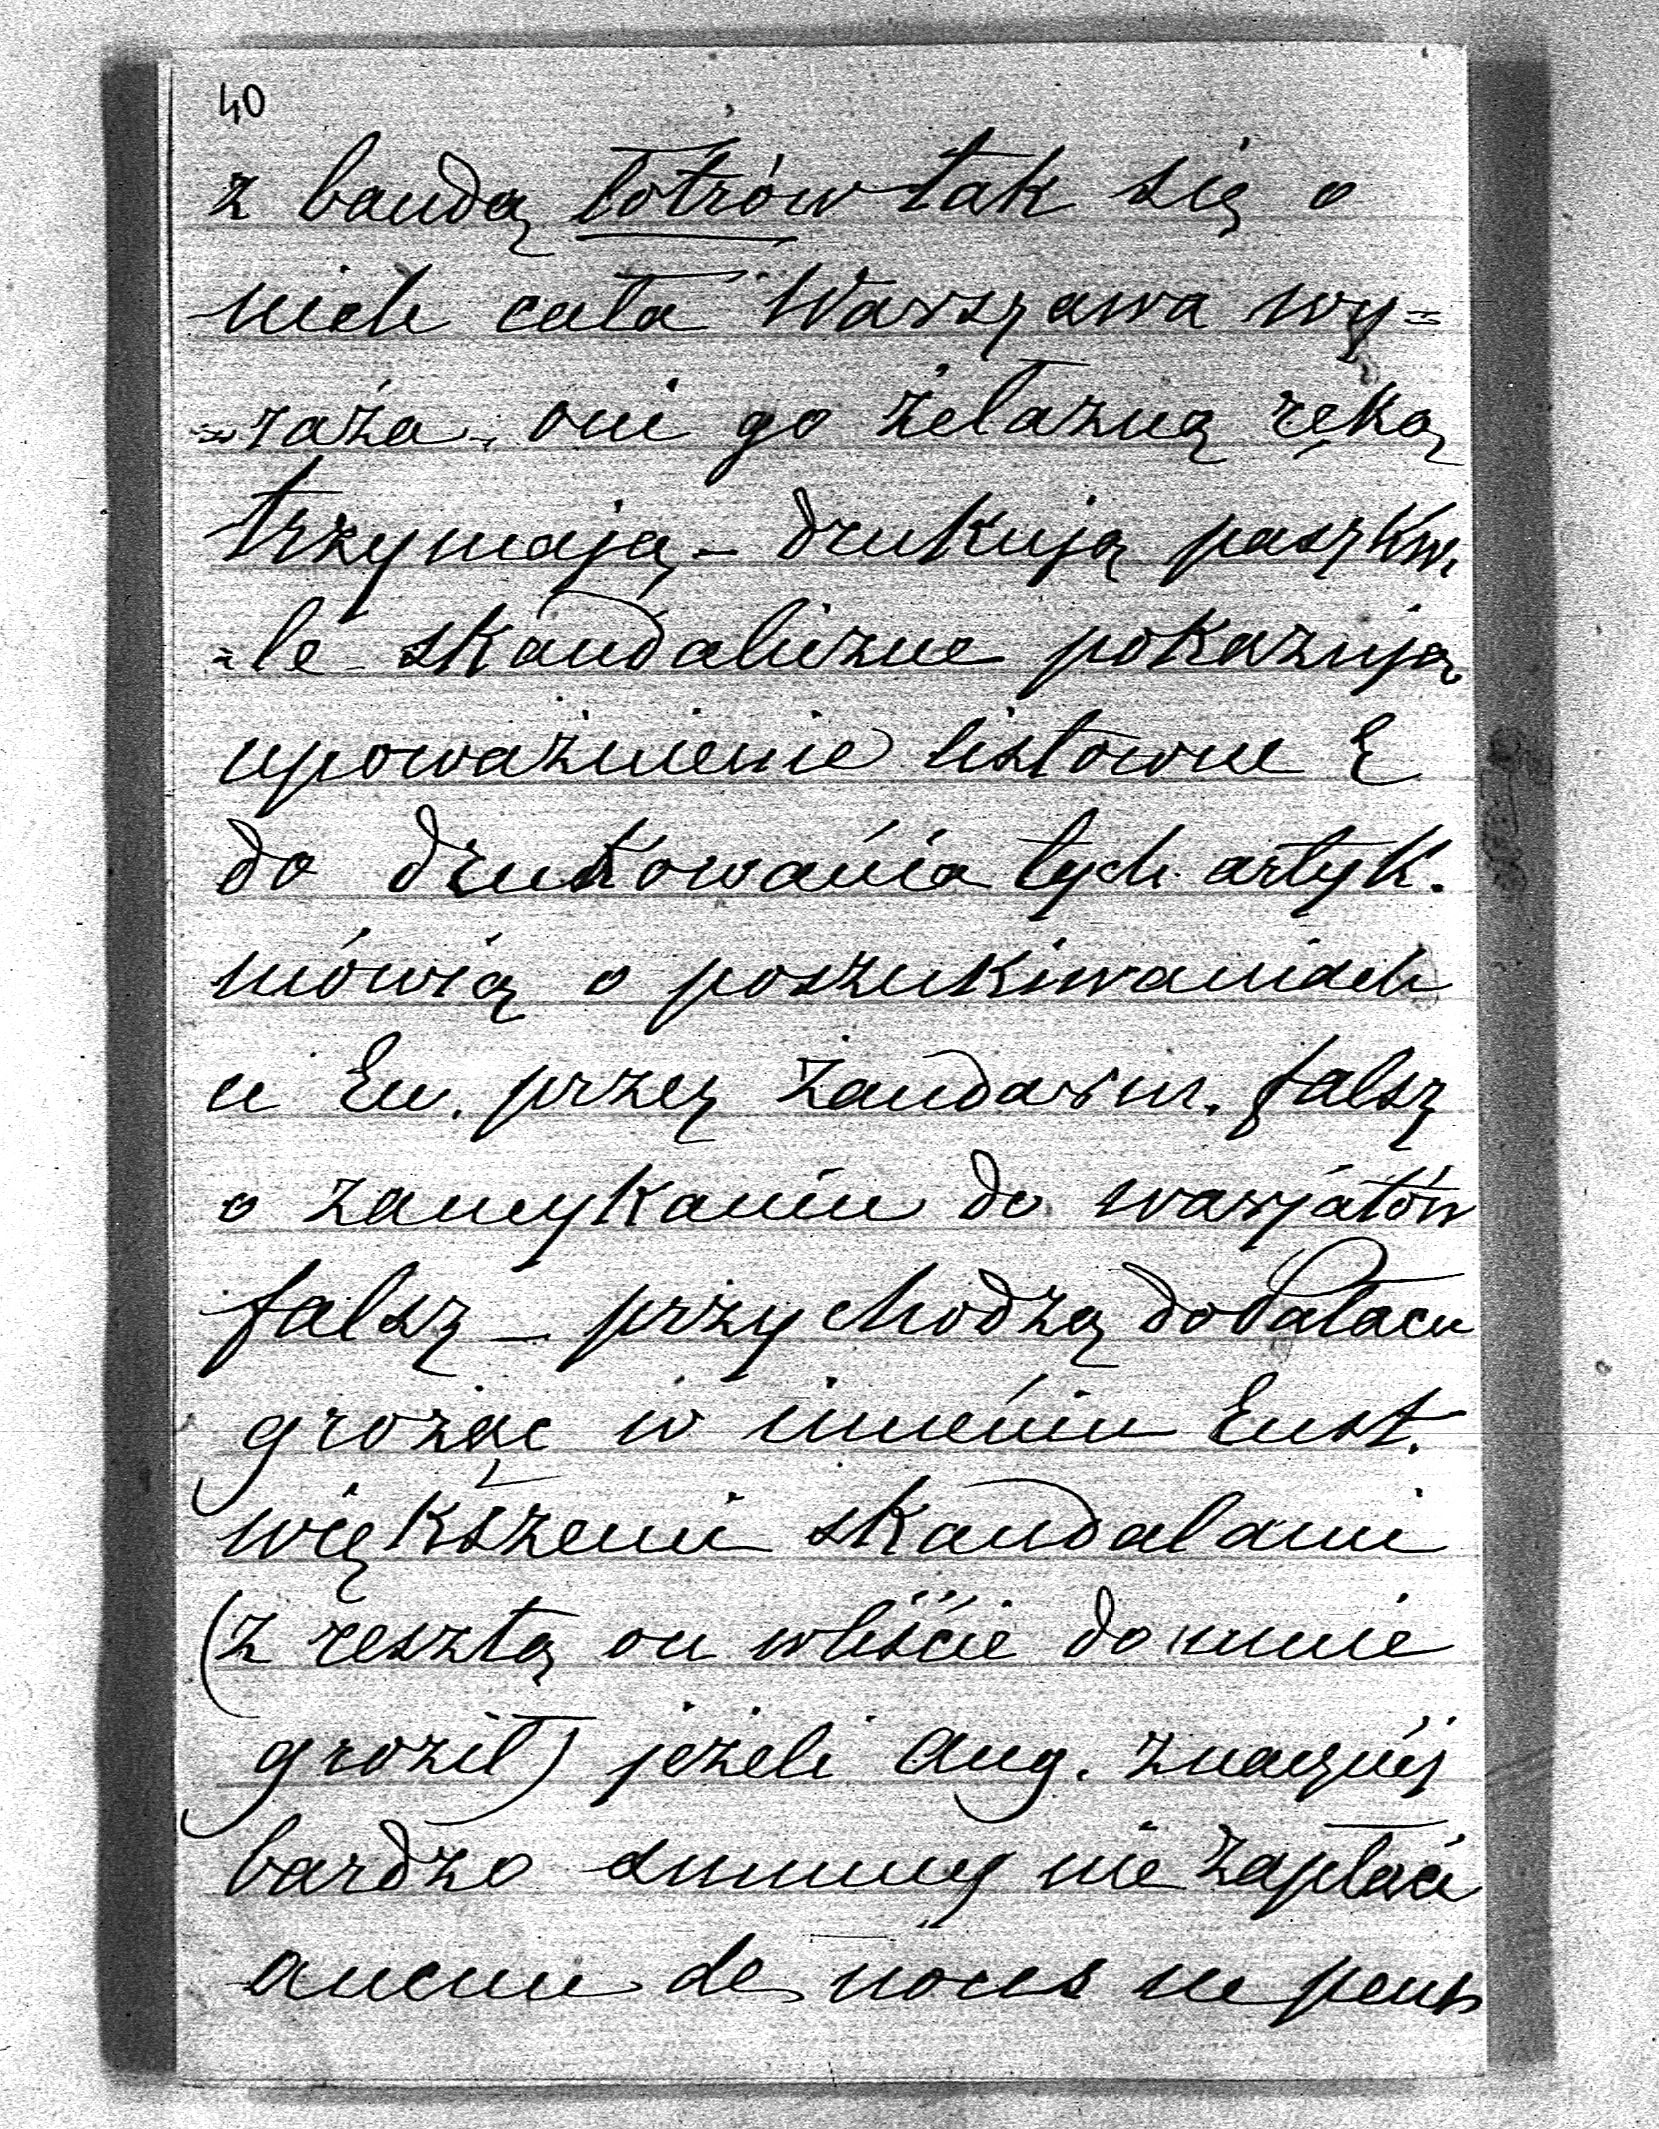 40
z bandą łotrów tak się o
nich cała Warszawa wy=
=raża, oni go żelazną ręką
trzymają – drukują paszkw,
=le skandaliczne pokazują
upoważnienie listowne E
do drukowania tych artyk.
mówią o poszukiwaniach
u Eu. przez żandarm. fałsz
o zamykaniu do warjatów
fałsz – przychodzą do Pałacu
grożąc w imieniu Eust.
większemi skandalami
(z resztą on w liście do mnie
groził) jeżeli Aug. znacznéj
bardzo summy nie zapłaci
aucun de nous ne peut